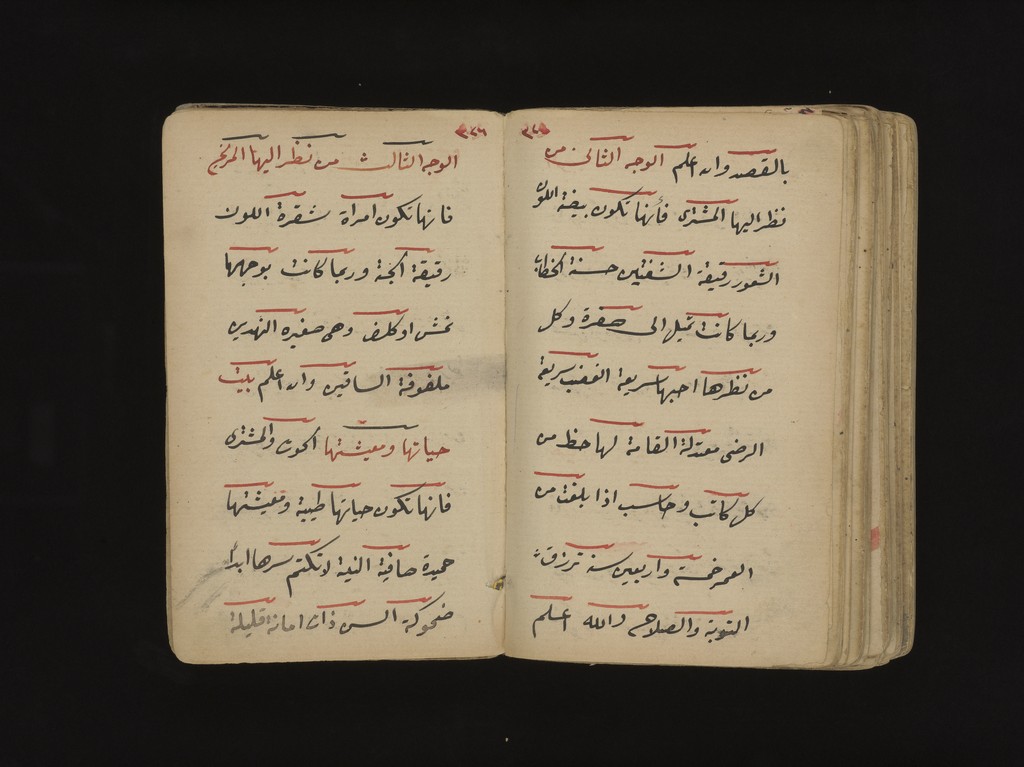 بالقصد وان اعلم الوجه الثانى من
نظر اليها المشترى فأنها تكون بيضة اللون
الشعور رقيقة الشفتين حسنة الخطاب
وربما كانت تميل الى صفرة وكل
من نظرها احبها سريعة الغضب سريعة
الرضى معتدلة القامة لها حظ من
كل كاتب وحاسب اذا بلغت من
العمر خمسة واربعين سنة ترزق
التوبة والصلاح والله اعلم
٣٢٦
الوجه الثالث من نظر اليها المريخ
فانها تكون امراة شقرة اللون
رقيقة الجثة وربما كانت بوجهها
نمش او كلف وهى صغيره النهدين
ملفوفة الساقين وان اعلم بيت
حياتها ومعيشتها الحوت والمشترى
فانها تكون حياتها طيبة ومعيشتها
حميدة صافية النية لا تكتم سرها ابدا
ضحوكة السن ذات امانة قليلة